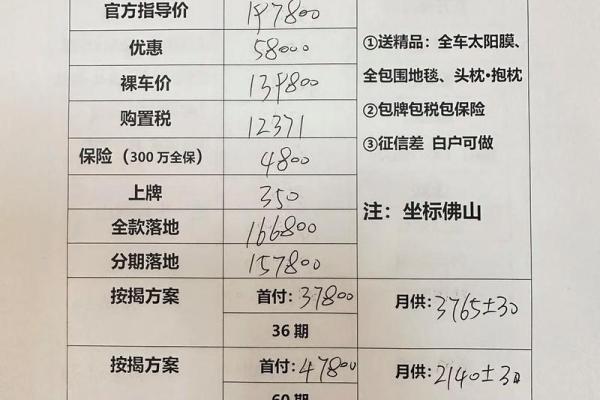 官方指导价 197800
优惠 58000
①送精品：全车太阳膜、
全包围地毯、头枕·抱枕
裸车价 139800
②包牌包税包保险
购置税 12371
③征信差 白户可做
保险（300万全保） 4800
上牌 350
注：坐标佛山
全款落地 166800
分期落地 157800
按揭方案 首付：37800 月供：3765±30
36期
按揭方案 首付：47800 月供：2140±30
60期